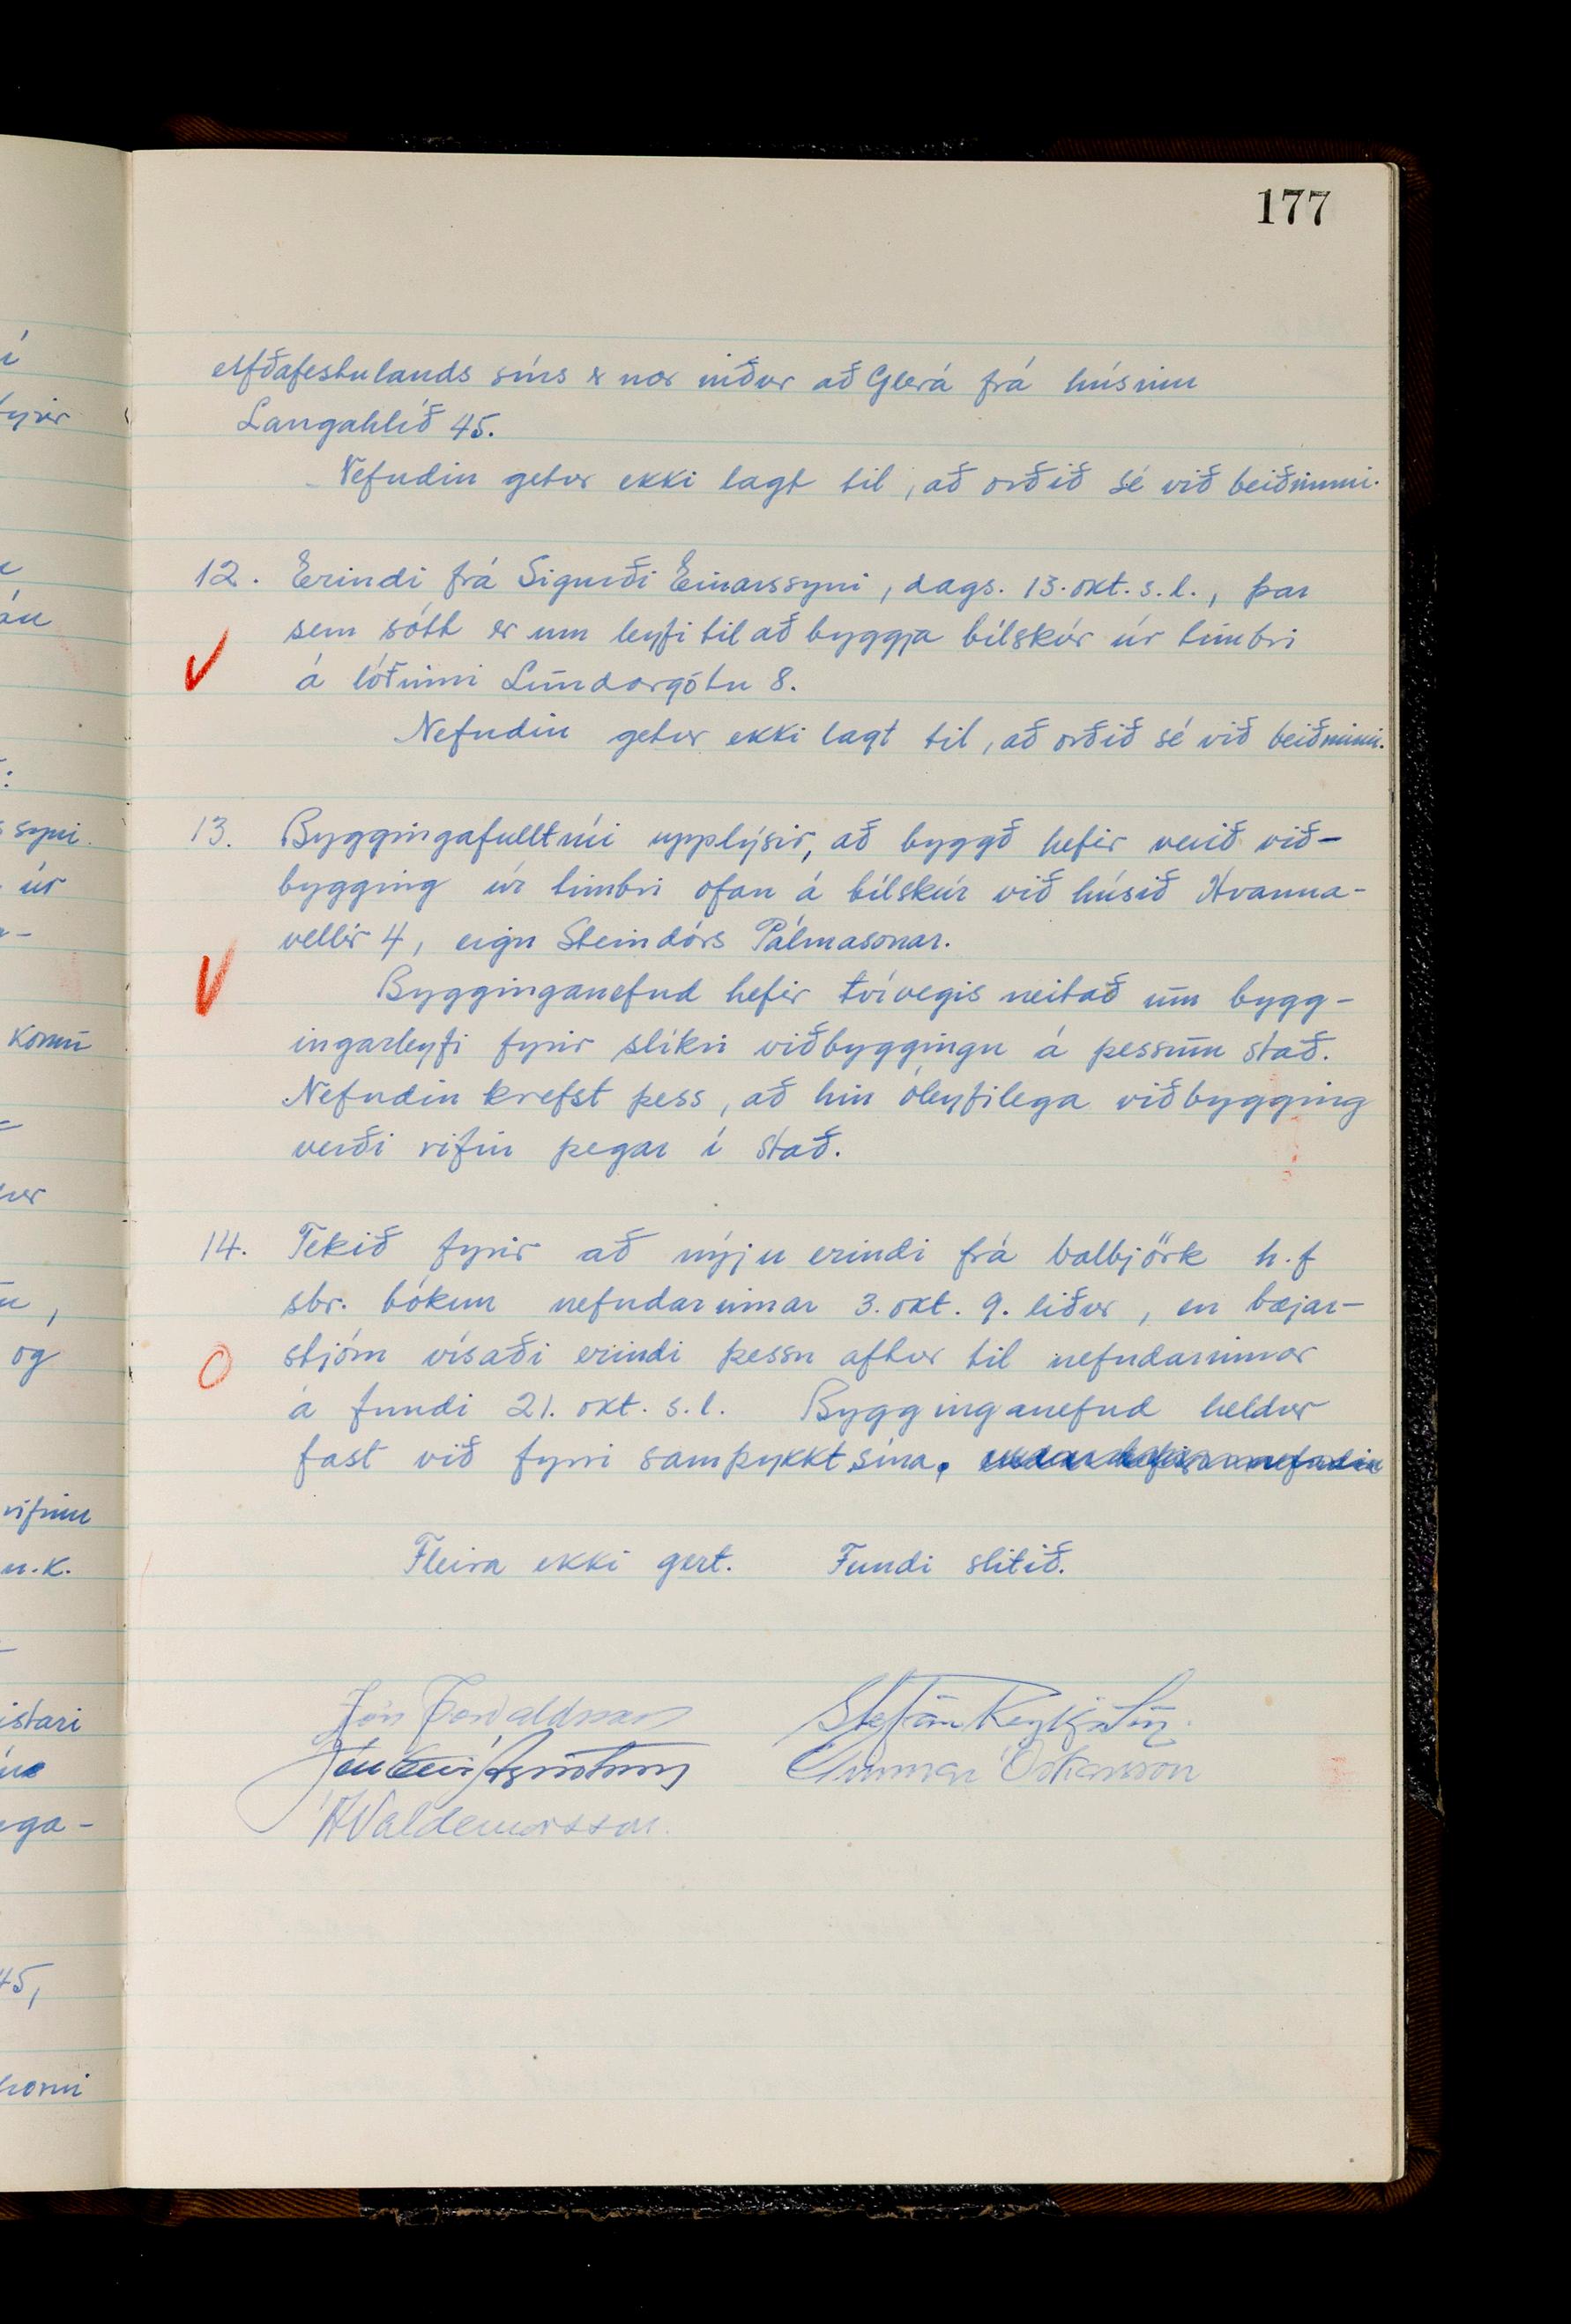 177
erfðafestulands síns er nær niður að Glerá frá húsinu
Langahlíð 45.
Nefndin getur ekki lagt til, að orðið sé við beiðninni.
12. Erindi frá Sigurði Einarssyni, dags. 13. okt. s.l., þar
sem sótt er um leyfi til að byggja bílskúr úr timbri
á lóðinni Lundargötu 8.
Nefndin getur ekki lagt til, að orðið sé við beiðninni.
13. Byggingafulltrúi upplýsir, að byggð hefir verið við-
bygging úr timbri ofan á bílskúr við húsið Hvanna-
vellir 4, eign Steindórs Pálmasonar.
Bygginganefnd hefir tvívegis neitað um bygg-
ingarleyfi fyrir slíkri viðbyggingu á þessum stað.
Nefndin krefst þess, að hin óleyfilega viðbygging
verði rifin þegar í stað.
14. Tekið fyrir að nýju erindi frá Valbjörk h.f
sbr. bókun nefndarinnar 3. okt. 9. liður, en bæjar-
stjórn vísaði erindi þessu aftur til nefndarinnar
á fundi 21. okt. s.l. Bygginganefnd heldur
fast við fyrri samþykkt sína.
Fleira ekki gert. Fundi slitið.
Jón Þorvaldsson Stefán Reykjalín
Gunnar Óskarsson
Valdemarsson